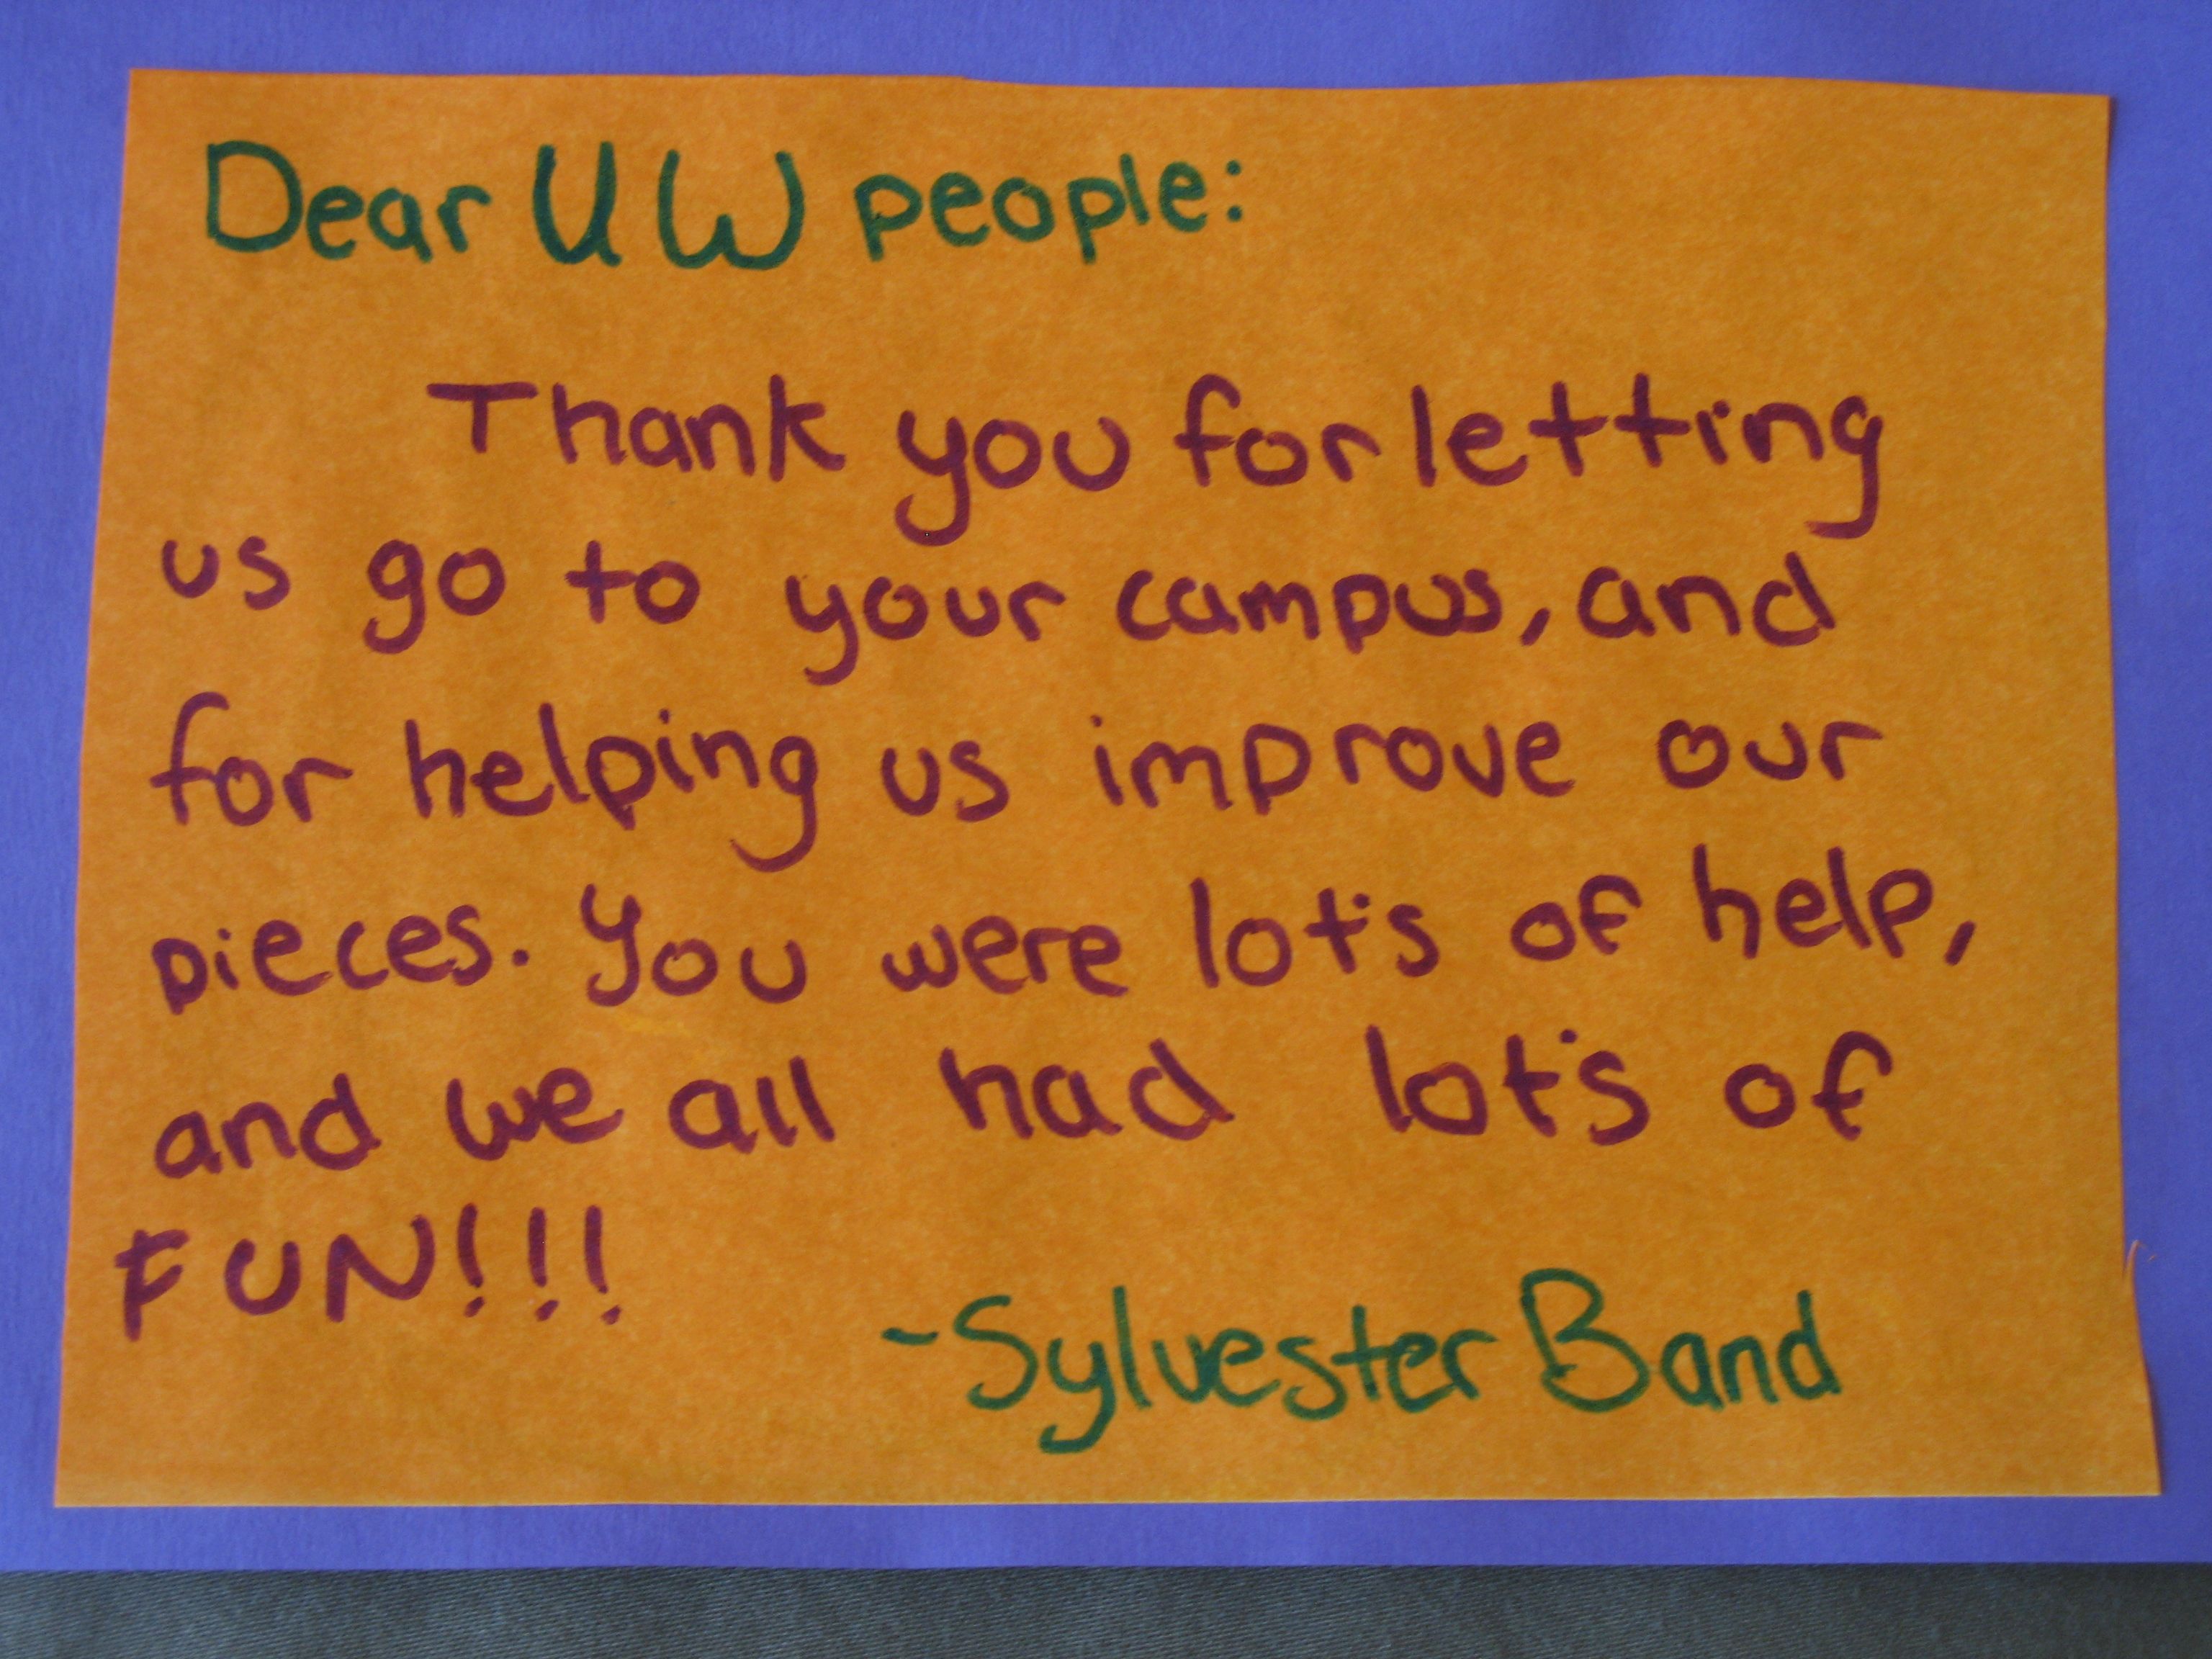 Dear UW people:
Thank you for letting
us go to your campus, and
for helping us improve our
pieces. You were lot's of help,
and we all had lot's of
FUN!!!
-Sylvester Band